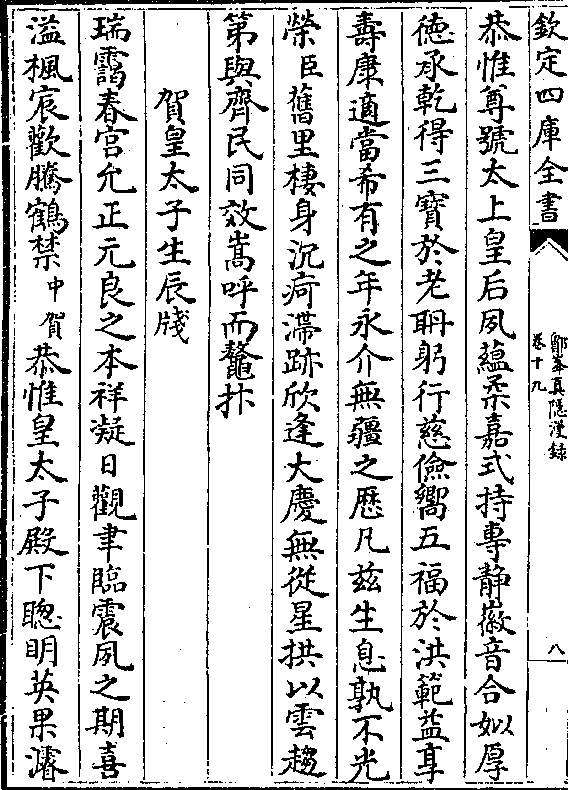 欽定四庫全書
鄮峯真隱漫録
卷十九
八
恭惟尊號太上皇后夙蘊柔嘉式持專静徽音合姒厚
徳承乾得三寳於老耼躬行慈儉嚮五福於洪範益享
壽康適當希有之年永介無疆之歴凡兹生息孰不光
榮臣舊里棲身沉疴滯跡欣逢大慶無從星拱以雲趨
第與齊民同效嵩呼而鼇抃
賀皇太子生辰牋
瑞靄春宫允正元良之本祥凝日觀聿臨震夙之期喜
溢楓宸歡騰鶴禁中賀恭惟皇太子殿下聰明英果濬